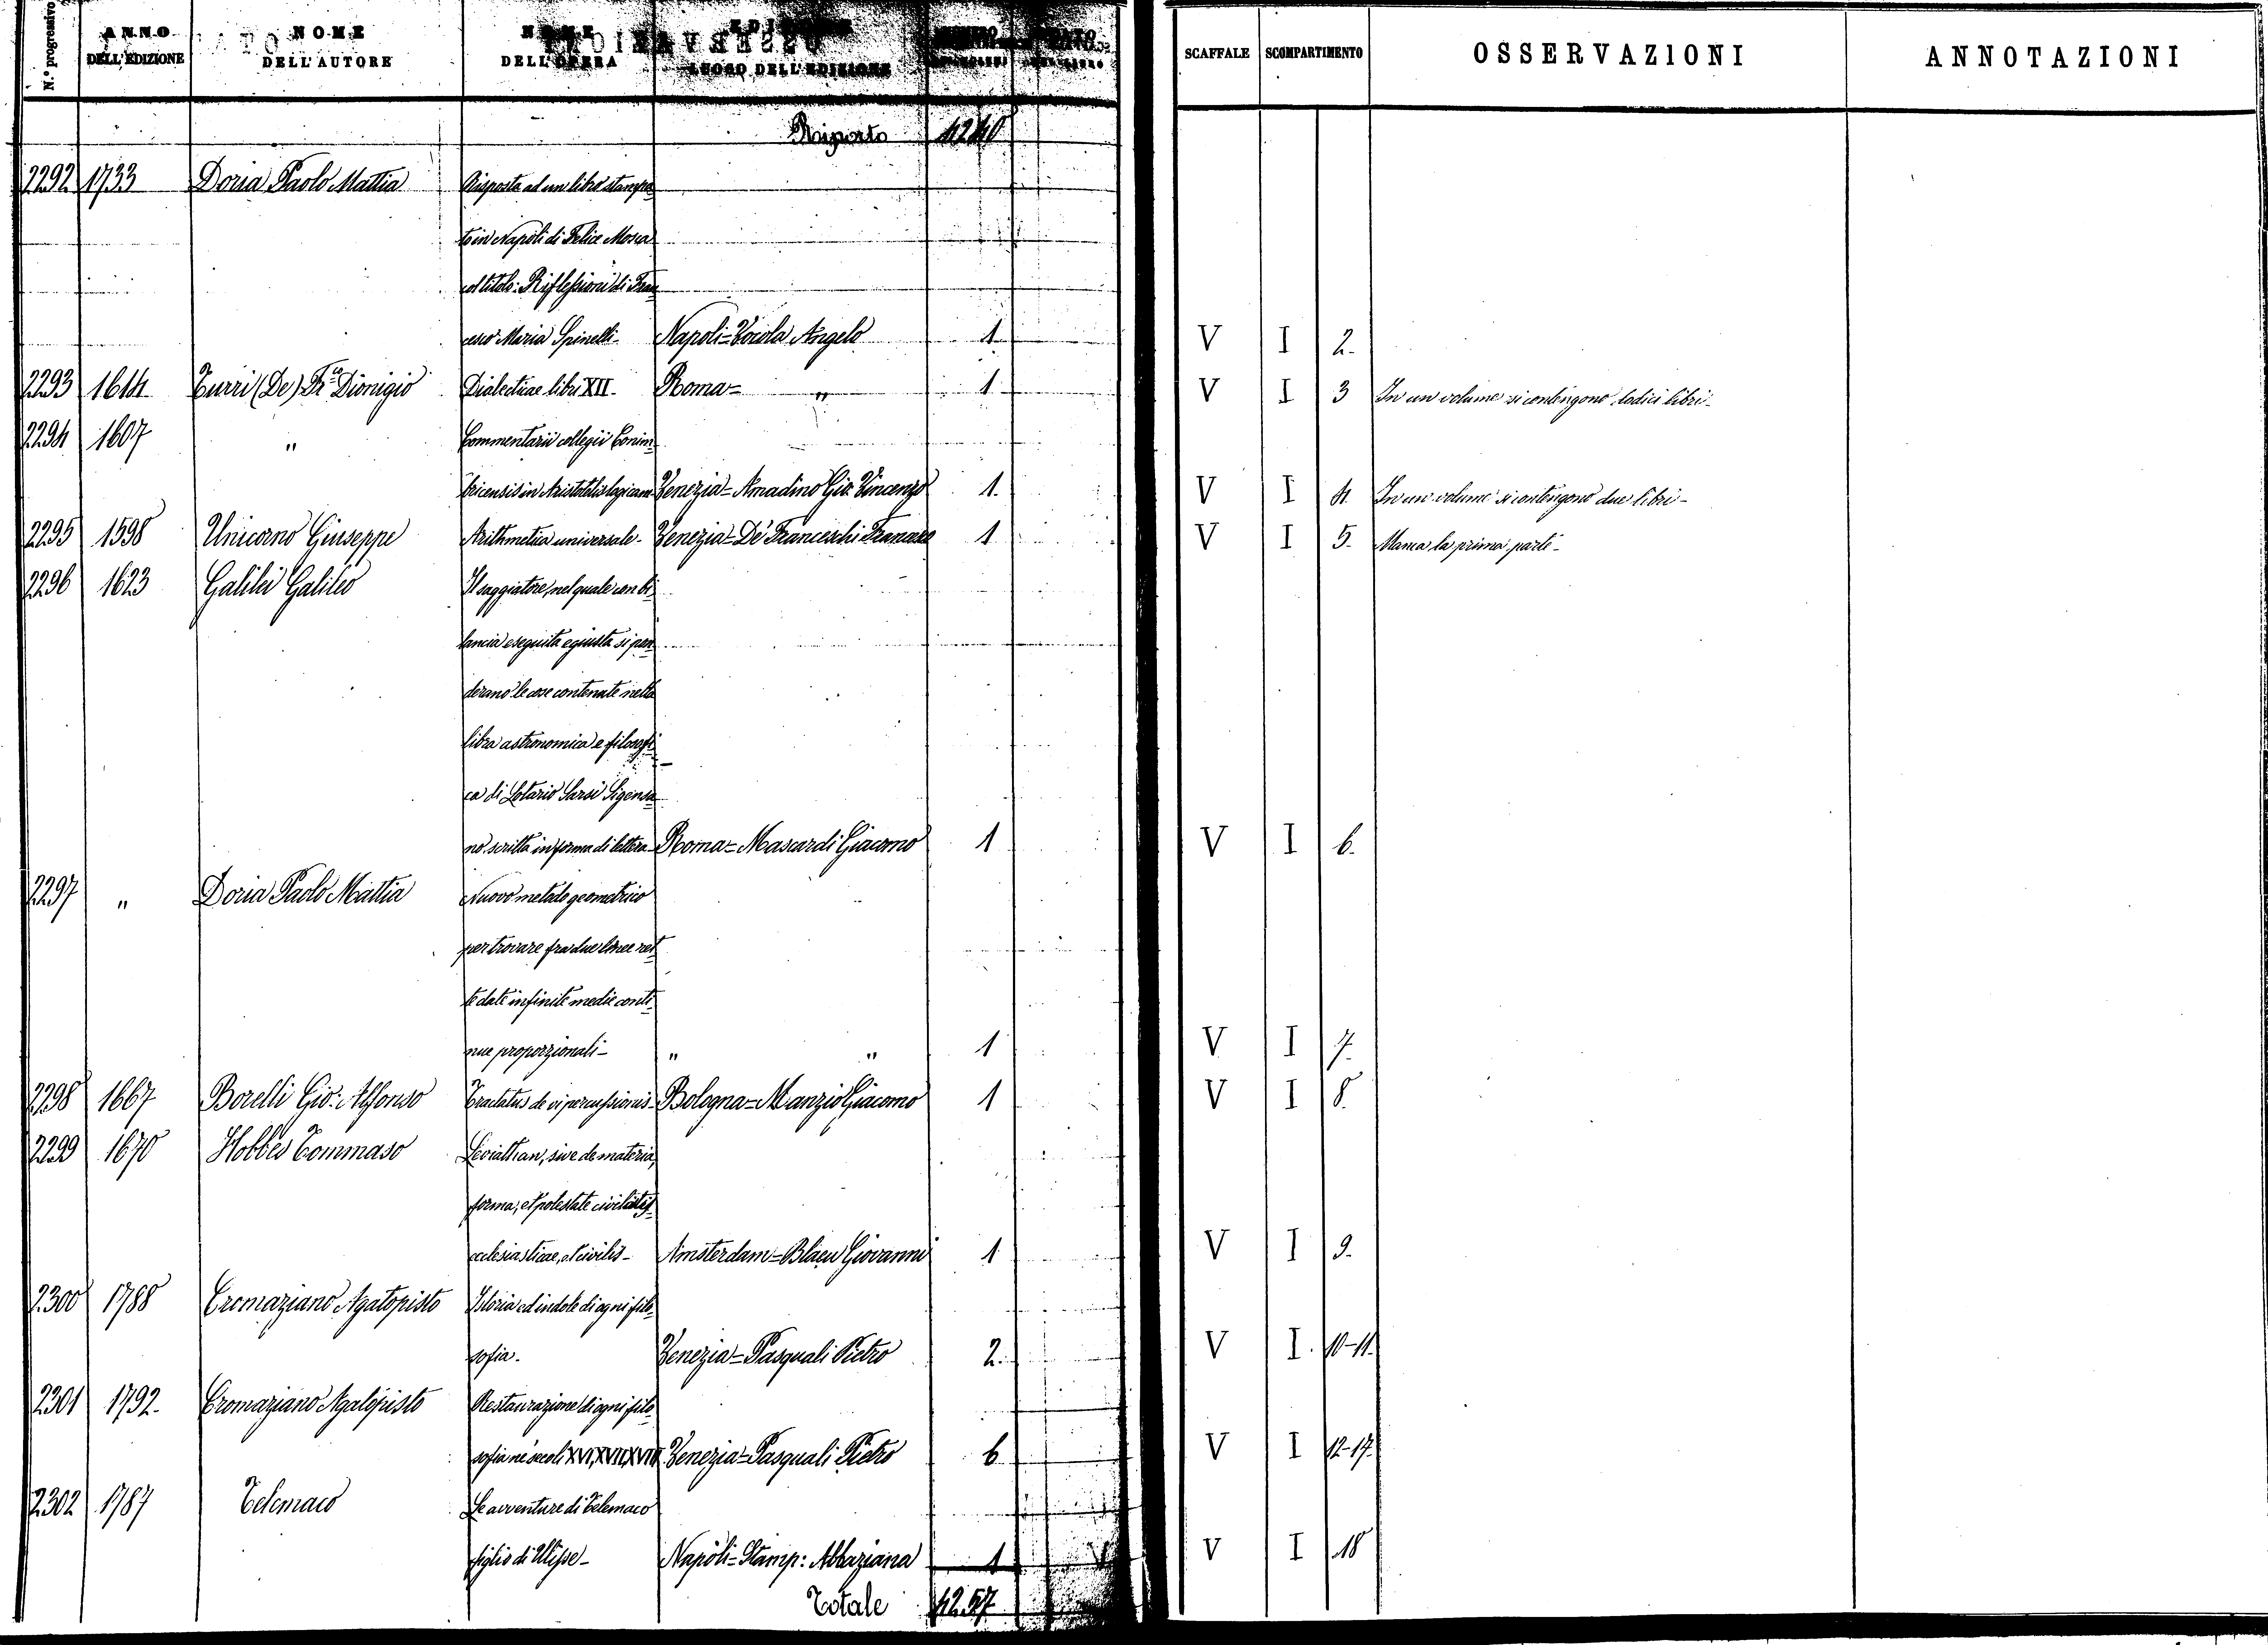 N.° progressivo
ANNO DELL'EDIZIONE
NOME DELL'AUTORE
NOME DELL'OPERA
EDIZIONE LUOGO DELL'EDIZIONE
SCAFFALE
SCOMPARTIMENTO
OSSERVAZIONI
ANNOTAZIONI
Riporto 4240
2292 1733 Doria Paolo Mattia Risposta ad un libro stampa
to in Napoli di Felice Mosca
col titolo: Riflessioni di Fran
cesco Maria Spinelli- Napoli= Vocola Angelo 1 V I 2.
2293 1614 Turri (De) Fr.co Dionigio Dialecticae libri XII- Roma= " 1 V I 3 In un volume si contengono dodici libri-
2294 1607 " Commentarii collegii Conim
bricensis in Aristotelis logicam- Venezia= Amadino Gio: Vincenzo 1. V I 4. In un volume si contengono due libri-
2295 1598 Unicorno Giuseppe Arithmetica universale- Venezia= De' Franceschi Francesco 1 V I 5. Manca la prima parte-
2296 1623 Galilei Galileo Il saggiatore, nel quale con bi
lancia esequita e giusta si pon
derano le cose contenute nella
libra astronomica e filosofi
ca di Lotario Sarsi Sigensa
no scritta in forma di lettera- Roma= Mascardi Giacomo 1 V I 6.
2297 " Doria Paolo Mattia Nuovo metodo geometrico
per trovare fra due linee ret
te date infinite medie conti
nue proporzionali- " " 1 V I 7.
2298 1667 Borelli Gio: Alfonso Tractatus de vi percussionis- Bologna= Manzio Giacomo 1 V I 8.
2299 1670 Hobbes Tommaso Leviathan, sive de materia,
forma, et potestate civitatis
ecclesiasticae, et civilis- Amsterdam= Blaeu Giovanni 1 V I 9.
2300 1788 Cromaziano Agatopisto Istoria ed indole di ogni filo
sofia- Venezia= Pasquali Pietro 2. V I. 10-11.
2301 1792. Cromaziano Agatopisto Restaurazione di ogni filo
sofia né secoli XVI, XVII, XVIII Venezia= Pasquali Pietro 6 V I 12-17.
2302 1787 Telemaco Le avventure di Telemaco
figlio di Ulisse- Napoli= Stamp: Abbaziana 1 V I 18
Totale 4257